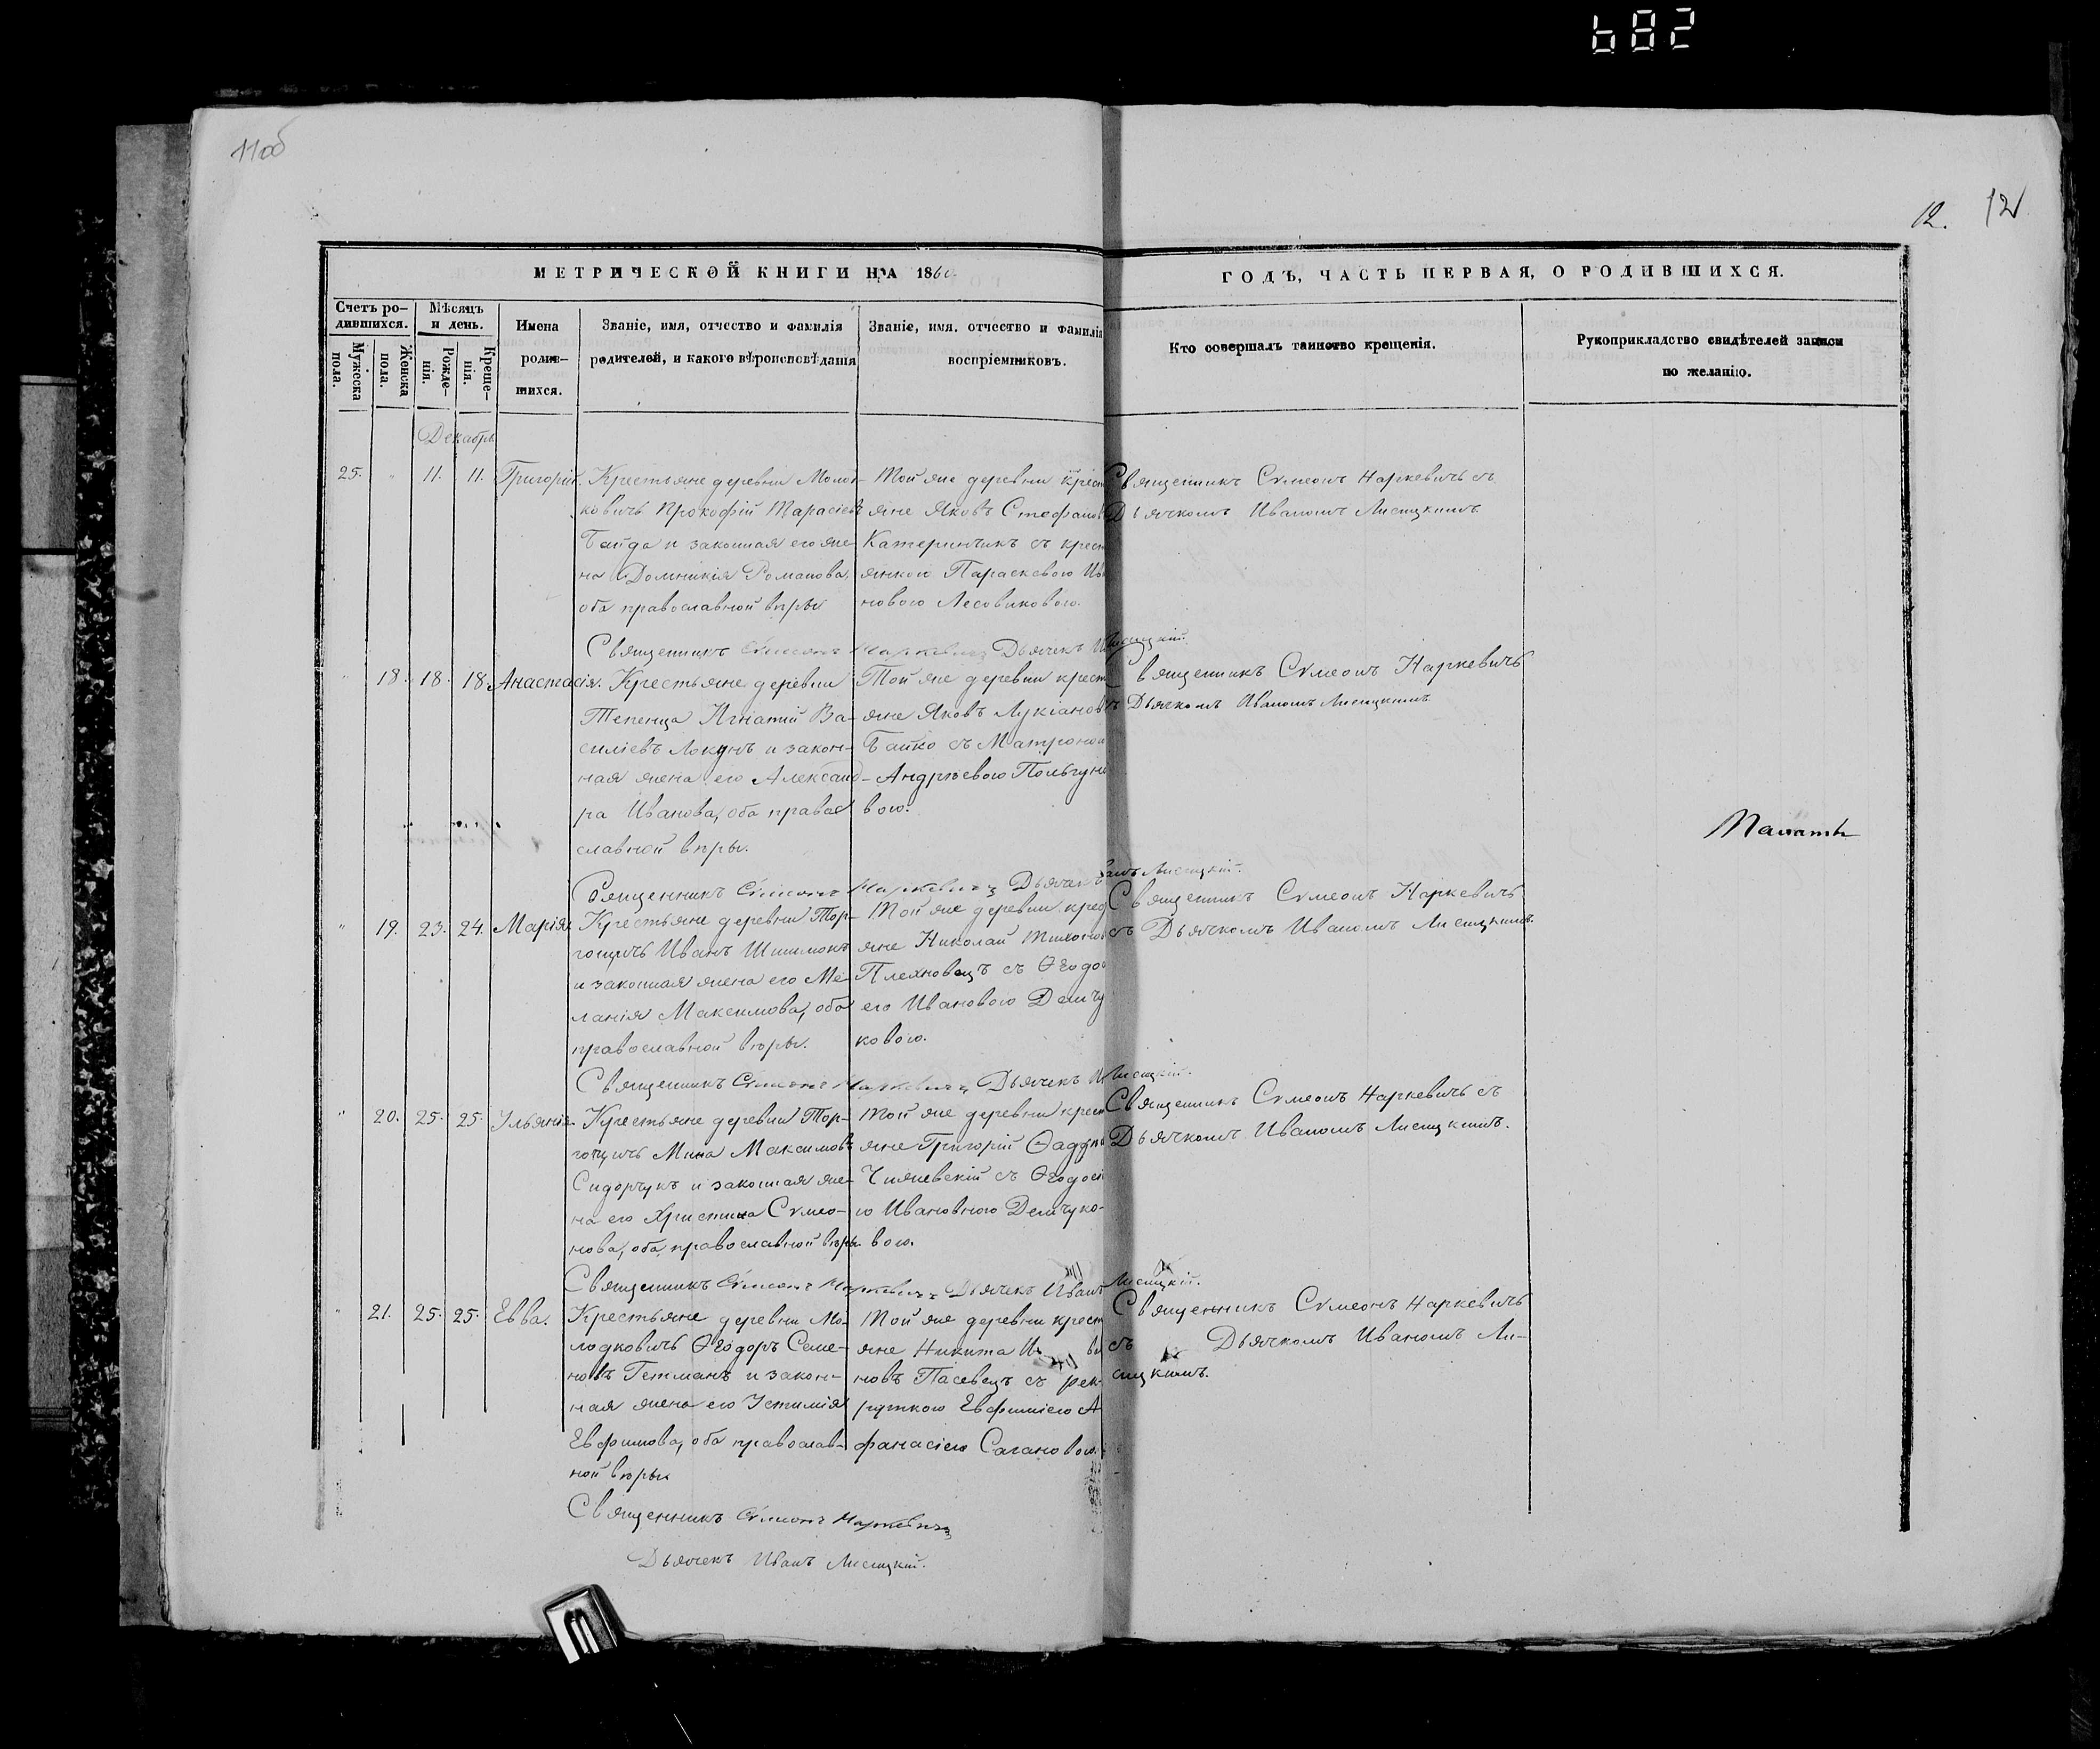 682
11об
12. 12
МЕТРИЧЕСКОЙ КНИГИ НА 1860
ГОДЪ, ЧАСТЬ ПЕРВАЯ, О РОДИВШИХСЯ.
Счетъ ро-
дившихся.
Мужеска
пола.
Женска
пола.
Мѣсяцъ
и день.
Рожде-
нія.
Креще-
нія.
Имена
родив-
шихся.
Званіе, имя, отчество и фамилія
родителей, и какого вѣроисповѣданія
Званіе, имя, отчество и фамилія
воспріемниковъ.
Кто совершалъ таинство крещенія.
Рукоприкладство свидѣтелей записи
по желанію.
Декабрь
25. " 11. 11. Григорій.
Крестьяне деревни Молод-
ковичь Прокофій Тарасіевъ
Гайда и законная его же-
на Домникія Романова,
оба православной вѣры
Той же деревни крест
яне Яковъ Стефанов
Катеринчикъ съ крест
янкою Параскевою Ива
новою Лесовиковою.
Священникъ Сѵмеонъ Наркевичь съ
Дьячкомъ Иваномъ Лисицкимъ.
Священникъ Сѵмеонъ Наркевичъ Дьячекъ И Лисицкій.
" 18. 18. 18. Анастасія.
Крестьяне деревни
Тепенца Игнатій Ва-
силіевъ Локунъ и закон-
ная жена его Александ-
ра Иванова, оба право
славной вѣры.
Той же деревни крест
яне Яковъ Лукіанов
Байко съ Матроною
Андрѣевою Польгуно
вою.
Священникъ Сѵмеонъ Наркевичь
съ Дьячкомъ Иваномъ Лисицкимъ
Священникъ Сѵмеонъ Наркевичъ Дьячекъ Иванъ Лисицкій.
" 19. 23. 24. Марія.
Крестьяне деревни Тор-
гощичь Иванъ Шишмокъ
и законная жена его Ме-
ланія Максимова, оба
православной вѣры.
Той же деревни крес
яне Николай Тихонов
Плехновецъ съ Ѳеодос
ею Ивановою Демчу
ковою.
Священникъ Сѵмеонъ Наркевичь
съ Дьячкомъ Иваномъ Лисицкимъ.
Священникъ Сѵмеонъ Наркевичъ Дьячекъ И. Лисицкій.
" 20. 25. 25. Ульянія.
Крестьяне деревни Тор-
гощичь Мина Максимовъ
Сидорчукъ и законная же-
на его Христина Сѵмео-
нова, оба православной вѣры.
Той же деревни крест
яне Григорій Ѳадде
Чижевскій съ Ѳеодосі
ю Ивановною Демчуко-
вою.
Священникъ Сѵмеонъ Наркевичь съ
Дьячкомъ Иваномъ Лисицкимъ.
Священникъ Сѵмеонъ Наркевичъ Дьячекъ Иванъ Лисицкій.
" 21. 25. 25. Евва.
Крестьяне деревни Мо-
лодковичь Ѳеодоръ Семе-
новъ Гетманъ и закон-
ная жена его Устинія
Евфимова, оба православ-
ной вѣры
Той же деревни крест
яне Никита
новъ Пасевецъ съ рек-
руткою Евфиміею А
фанасіею Сагановою.
Священникъ Сѵмеонъ Наркевичь
съ Дьячкомъ Иваномъ Ли-
сицкимъ.
Священникъ Сѵмеонъ Наркевичъ
Дьячекъ Иванъ Лисицкій.